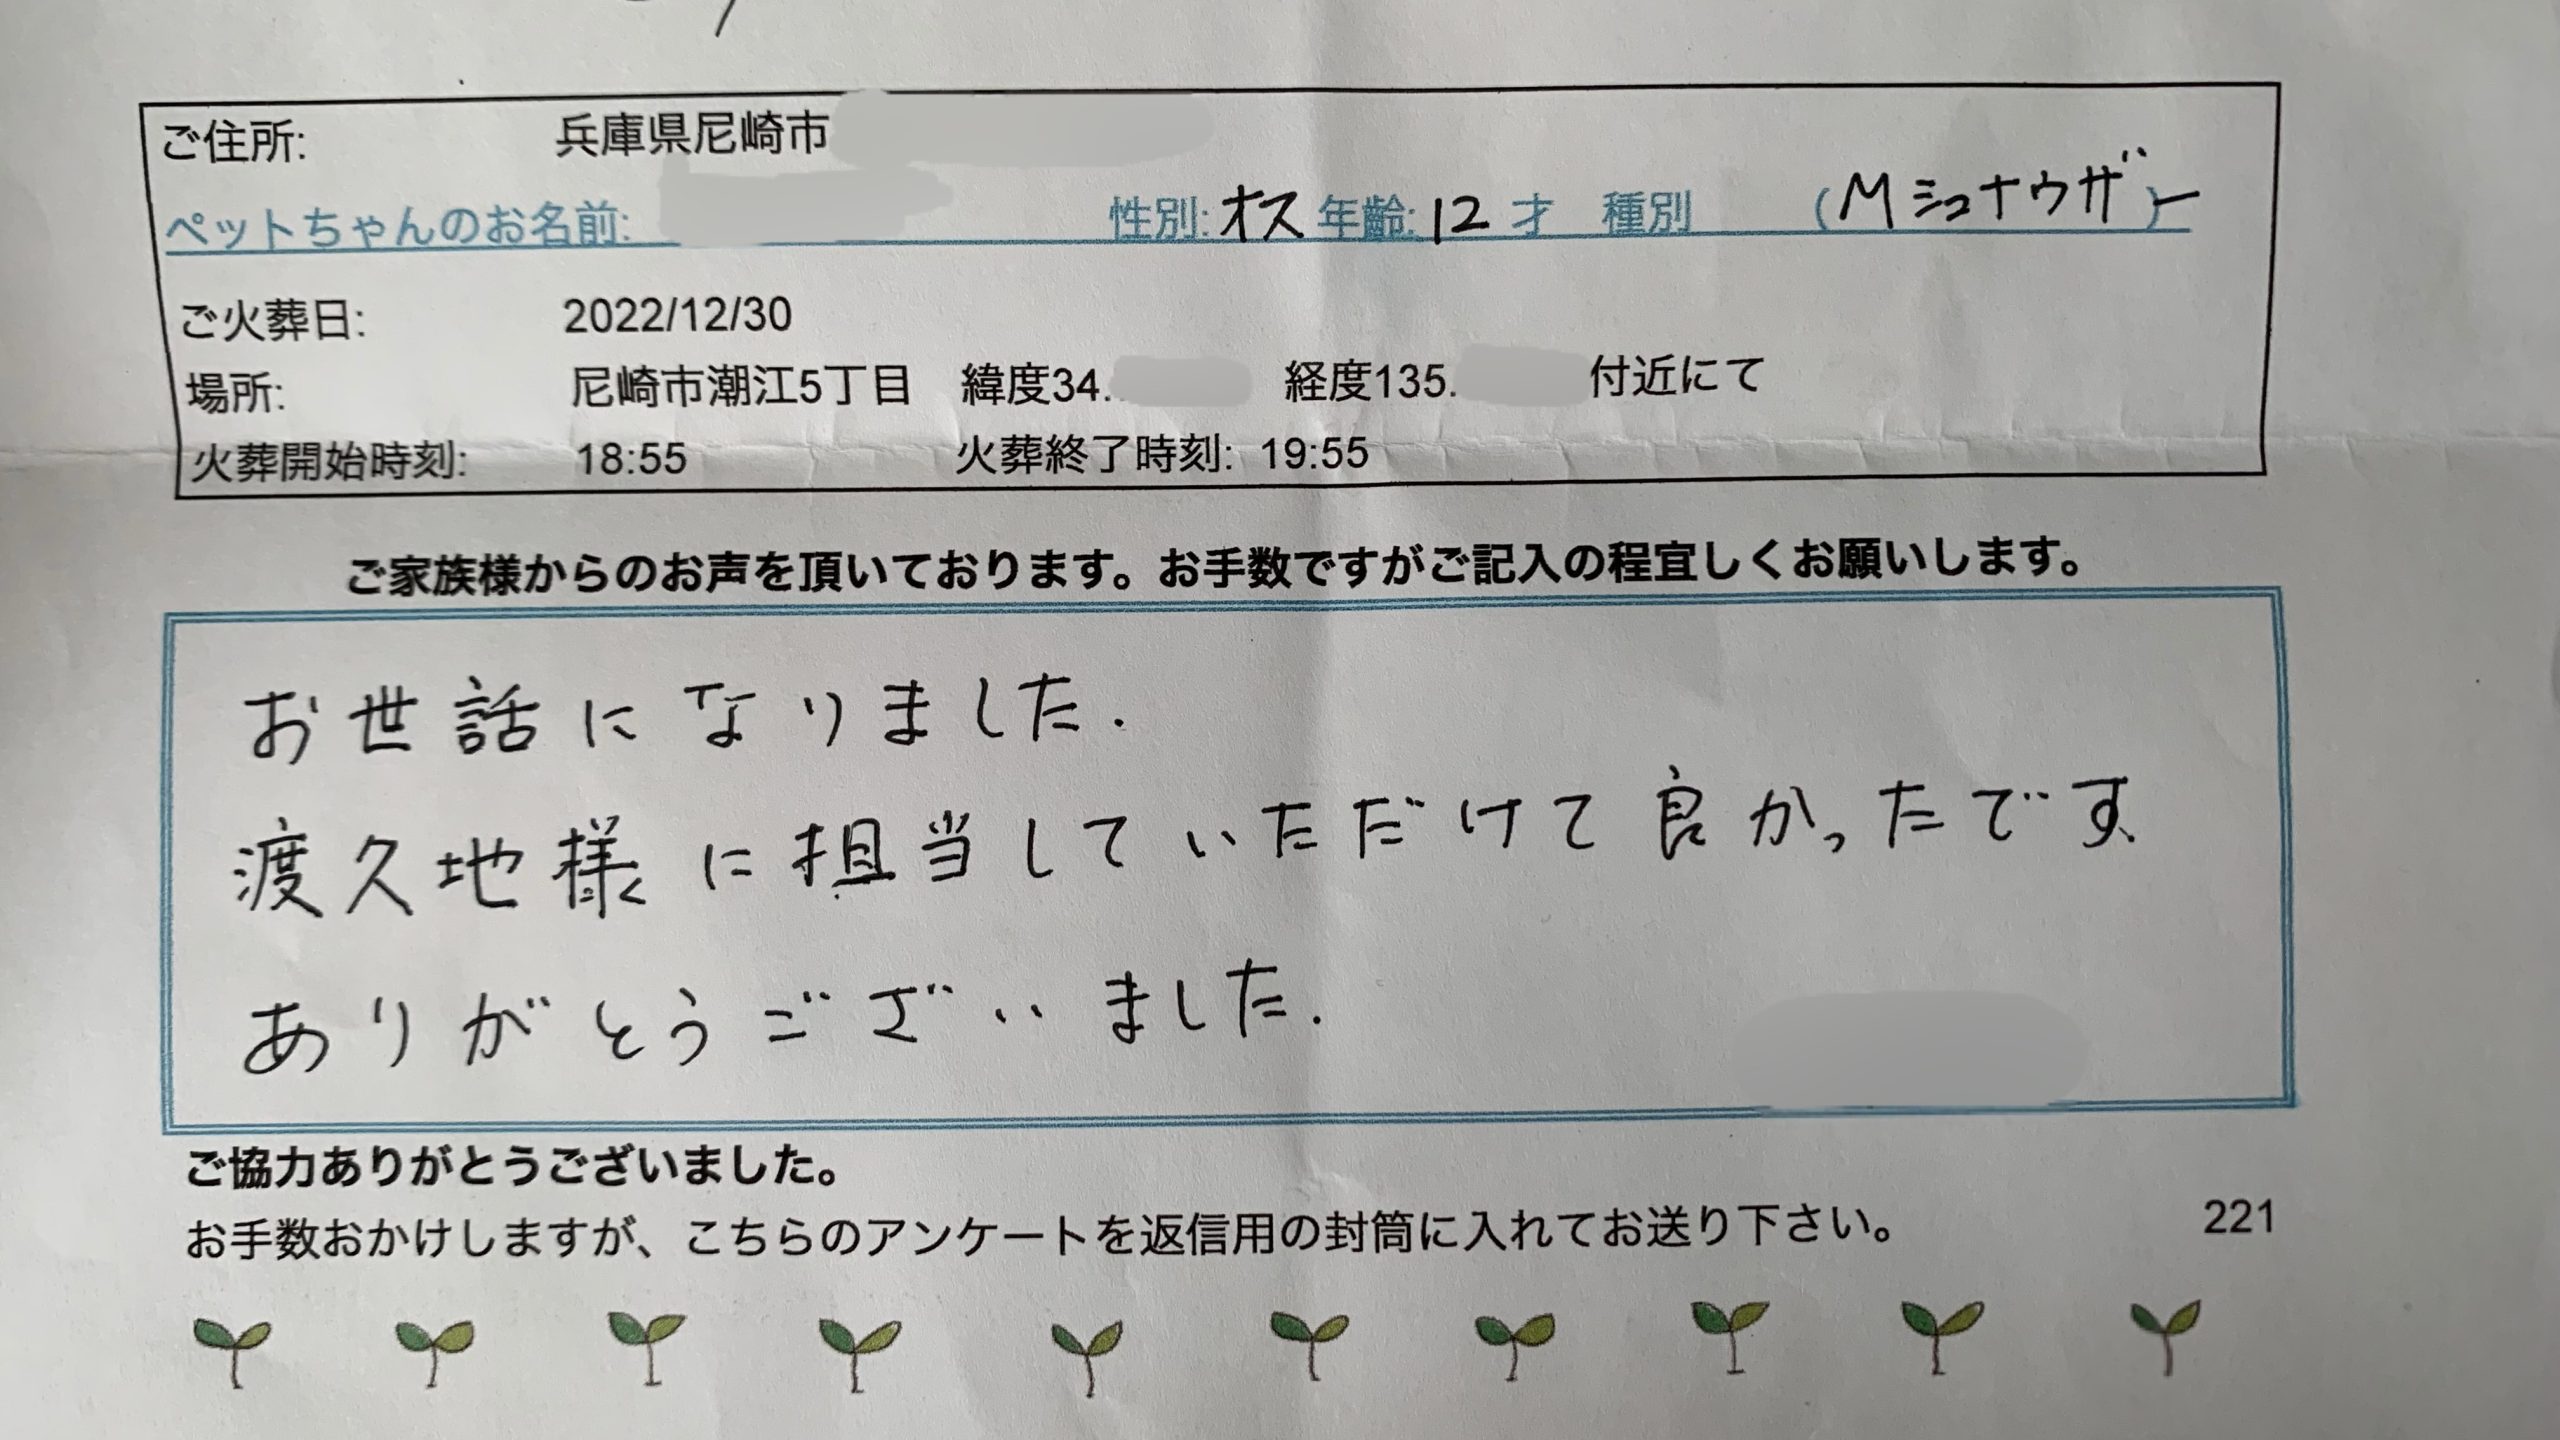 ご住所: 兵庫県尼崎市
ペットちゃんのお名前: 性別: オス 年齢: 12 才 種別 (Mシュナウザー)
ご火葬日: 2022/12/30
場所: 尼崎市潮江5丁目 緯度34. 経度135. 付近にて
火葬開始時刻: 18:55 火葬終了時刻: 19:55
ご家族様からのお声を頂いております。お手数ですがご記入の程宜しくお願いします。
お世話になりました.
渡久地様に担当していただけて良かったです.
ありがとうございました.
ご協力ありがとうございました。
お手数おかけしますが、こちらのアンケートを返信用の封筒に入れてお送り下さい。 221